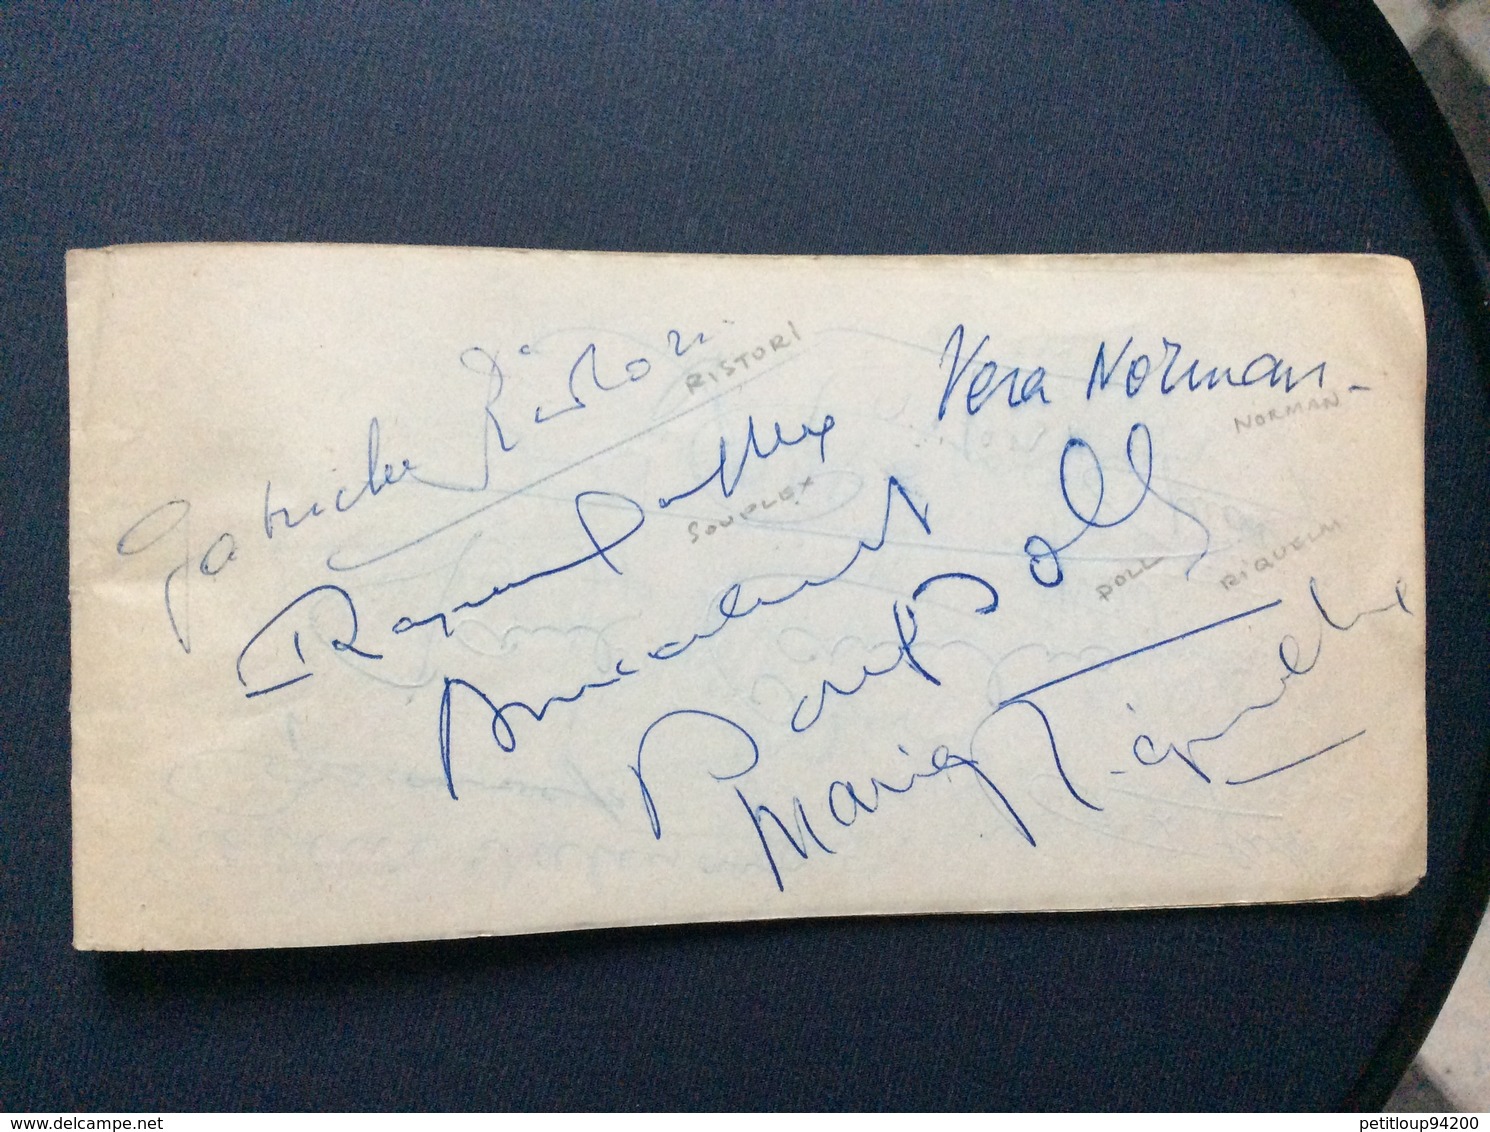 Gabriello Ristori
RISTORI
Vera Norman
NORMAN
Raymond Souplex
SOUPLEX
Amicalement
Poll
POLL
Maria Riquelme
RIQUELM
© delcampe.net
petitloup94200